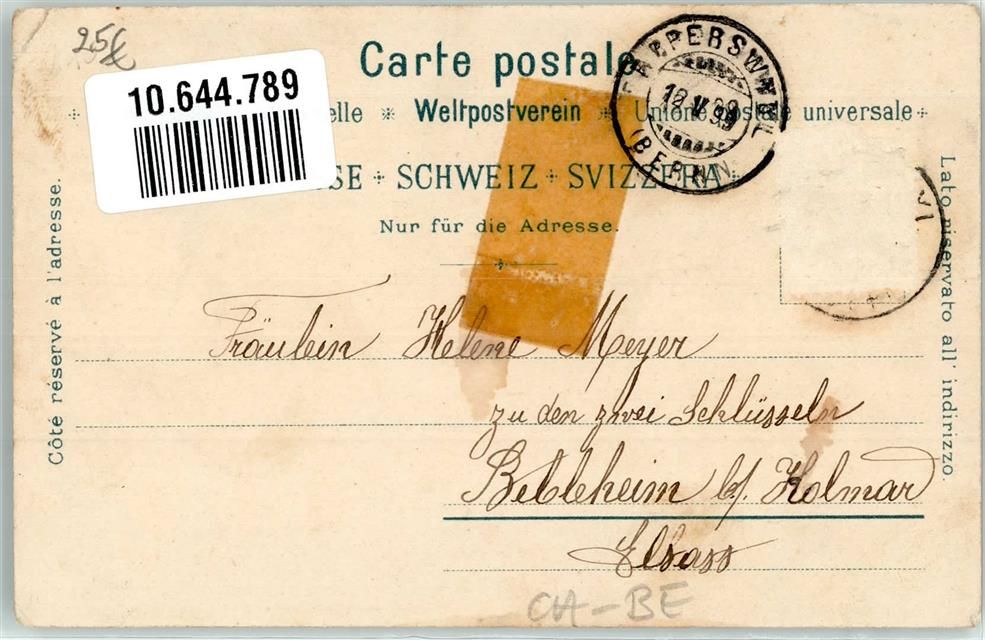 25€
10.644.789
Carte postale
elle ※ Weltpostverein ※ Unione postale universale
SSE + SCHWEIZ + SVIZZERA
Nur für die Adresse.
RAPPERSWYL
(BERN)
Côté réservé à l'adresse.
Lato riservato all' indirizzo.
Fräulein Helene Meyer
zu den zwei Schlüsseln
Bebleheim b/ Kolmar
Elsass
CH-BE